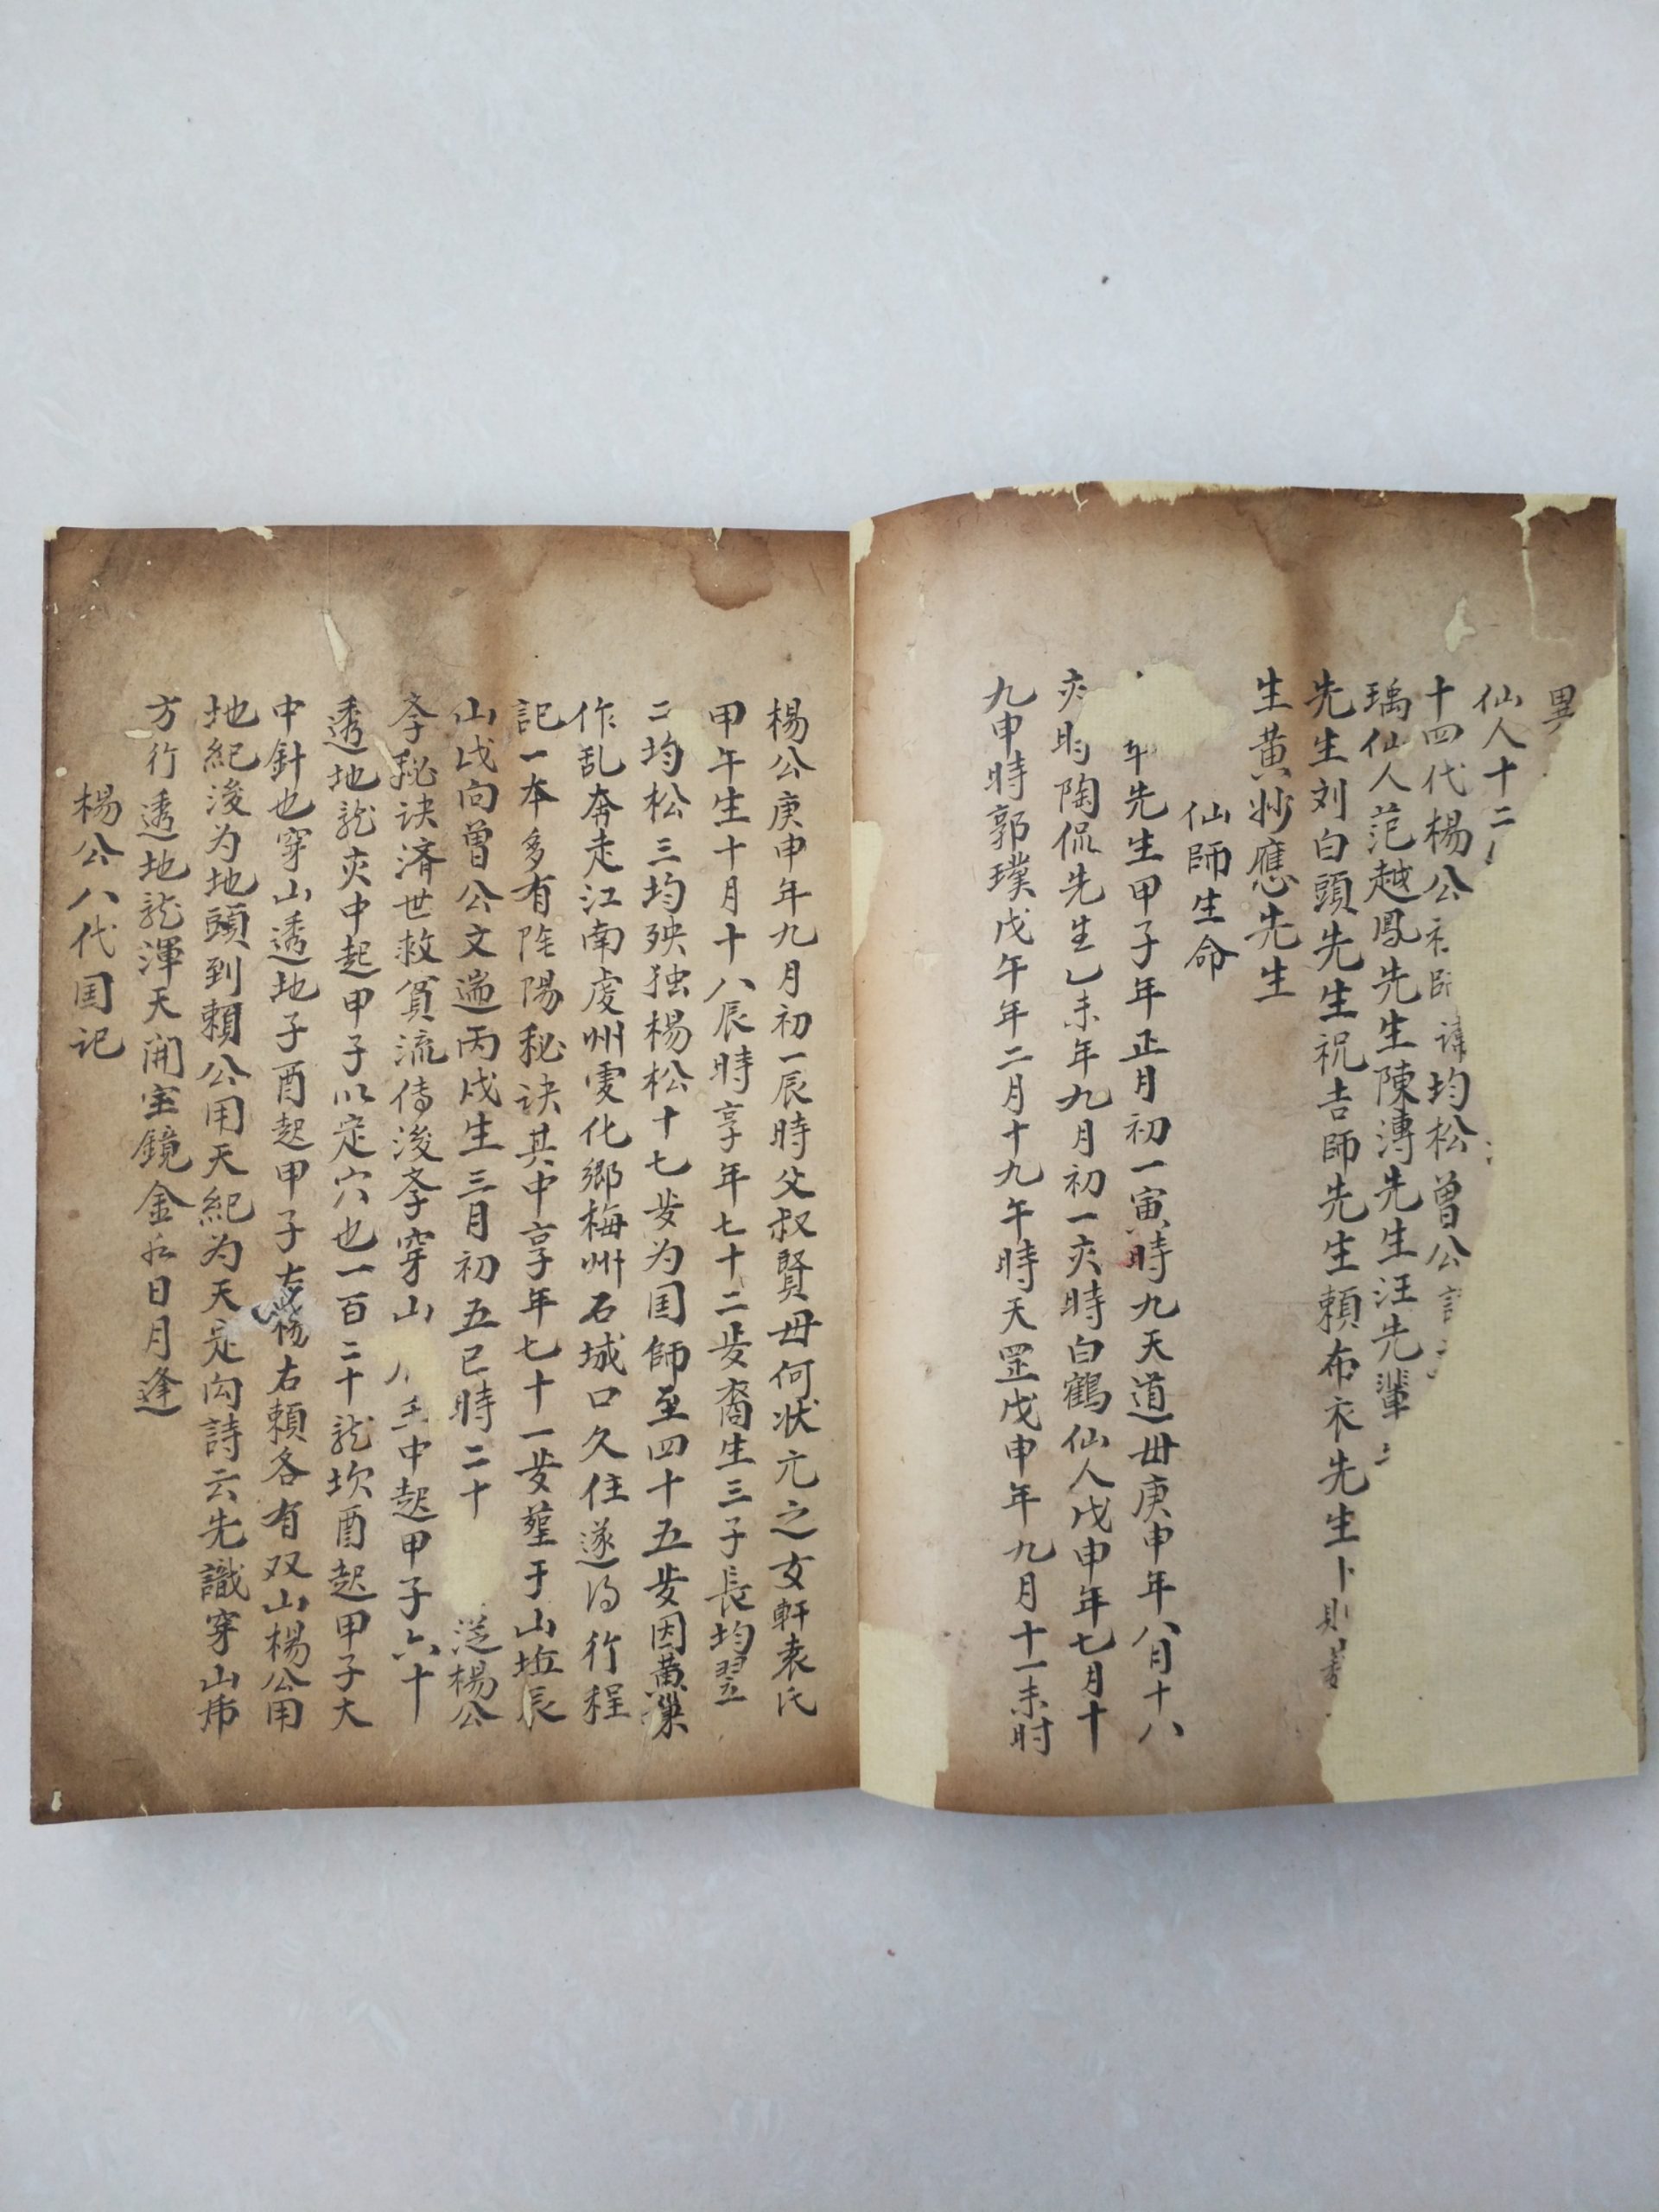 異
仙人十二
十四代楊公 均松曾公
瑀仙人范越鳳先生陳溥先生汪先輩
先生刘白頭先生祝吉師先生賴布衣先生卜則
生黄妙應先生
仙師生命
先生甲子年正月初一寅時九天道毋庚申年八月十八
亥时陶侃先生乙未年九月初一亥時白鶴仙人戊申年七月十
九申時郭璞戊午年二月十九午時天罡戊申年九月十一未时
楊公庚申年九月初一辰時父叔賢毋何状元之女軒袁氏
甲午生十月十八辰時享年七十二歨裔生三子長均翌
二均松三均殃独楊松十七歨为囯師至四十五歨因黄巢
作乱奔走江南虔州雯化鄉梅州石城口久住遂得行程
記一本多有陰陽秘诀其中享年七十一歨塟于山坵辰
山戌向曾公文遄丙戌生三月初五巳時二十 楊公
斈秘诀済世救貧流傳後斈穿山 中起甲子六十
透地龍亥中起甲子以定穴也一百二十龍坎酉起甲子大
中針也穿山透地子酉起甲子 楊右賴各有双山楊公用
地紀後为地頭到賴公用天紀为天 詩云先識穿山
方行透地龍渾天開宝鏡金 日月逢
楊公八代囯记